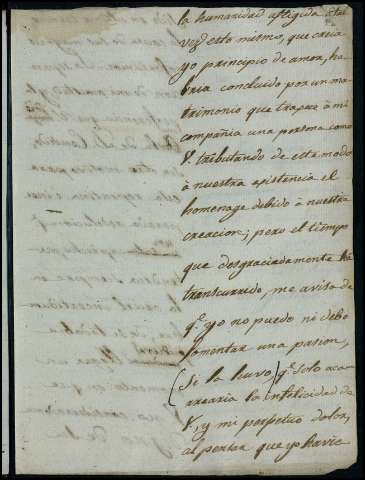 la humanidad afligida: tal
vez esto mismo, que creia
yo principio de amor, ha
bria concluido por un ma
trimonio que trajese à mi
compañia una persona como
V. tributando de este modo
à nuestra existencia el
homenage debido à nuestra
creacion; pero el tiempo
que desgraciadamente ha
transcurrido, me avisa de
q.e yo no puedo ni debo
fomentar una pasion,
(Si la huvo) q.e solo aca
rrearia la infelicidad de
V., y mi perpetuo dolor,
al pensar que yo havia